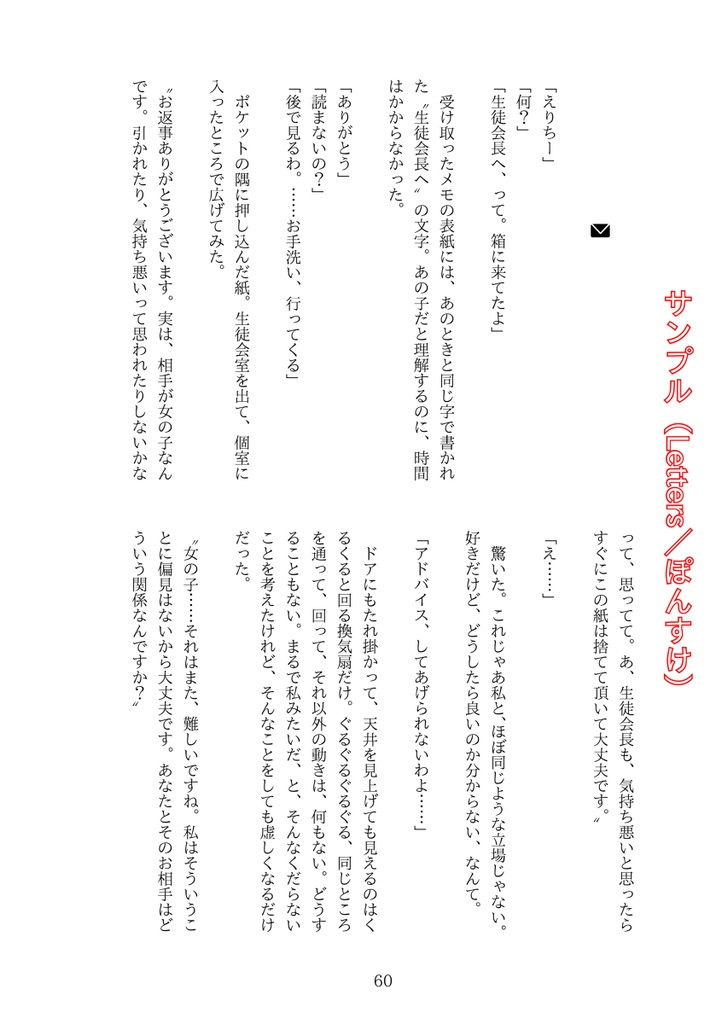 サンプル（Letters／ぽんすけ）
「えりちー」
「何？」
「生徒会長へ、って。箱に来てたよ」
　受け取ったメモの表紙には、あのときと同じ字で書かれ
た〝生徒会長へ〟の文字。あの子だと理解するのに、時間
はかからなかった。
「ありがとう」
「読まないの？」
「後で見るわ。……お手洗い、行ってくる」
　ポケットの隅に押し込んだ紙。生徒会室を出て、個室に
入ったところで広げてみた。
〝お返事ありがとうございます。実は、相手が女の子なん
です。引かれたり、気持ち悪いって思われたりしないかな
って、思ってて。あ、生徒会長も、気持ち悪いと思ったら
すぐにこの紙は捨てて頂いて大丈夫です。〟
「え……」
　驚いた。これじゃあ私と、ほぼ同じような立場じゃない。
好きだけど、どうしたら良いのか分からない、なんて。
「アドバイス、してあげられないわよ……」
　ドアにもたれ掛かって、天井を見上げても見えるのはく
るくると回る換気扇だけ。ぐるぐるぐるぐる、同じところ
を通って、回って、それ以外の動きは、何もない。どうす
ることもない。まるで私みたいだ、と、そんなくだらない
ことを考えたけれど、そんなことをしても虚しくなるだけ
だった。
〝女の子……それはまた、難しいですね。私はそういうこ
とに偏見はないから大丈夫です。あなたとそのお相手はど
ういう関係なんですか？〟
60